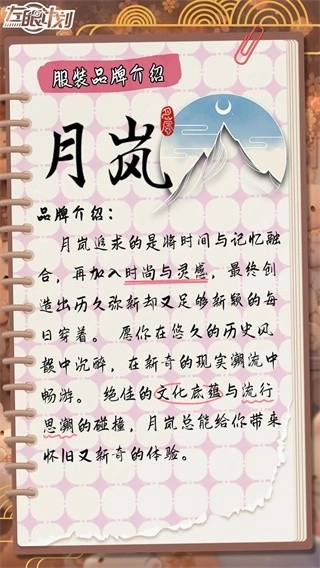 左眼计划
服装品牌介绍
月岚
品牌介绍：
月岚追求的是将时间与记忆融
合，再加入时尚与灵感，最终创
造出历久弥新却又足够新颖的每
日穿着。 愿你在悠久的历史风
韵中沉醉，在新奇的现实溯流中
畅游。 绝佳的文化底蕴与流行
思溯的碰撞，月岚总能给你带来
怀旧又新奇的体验。